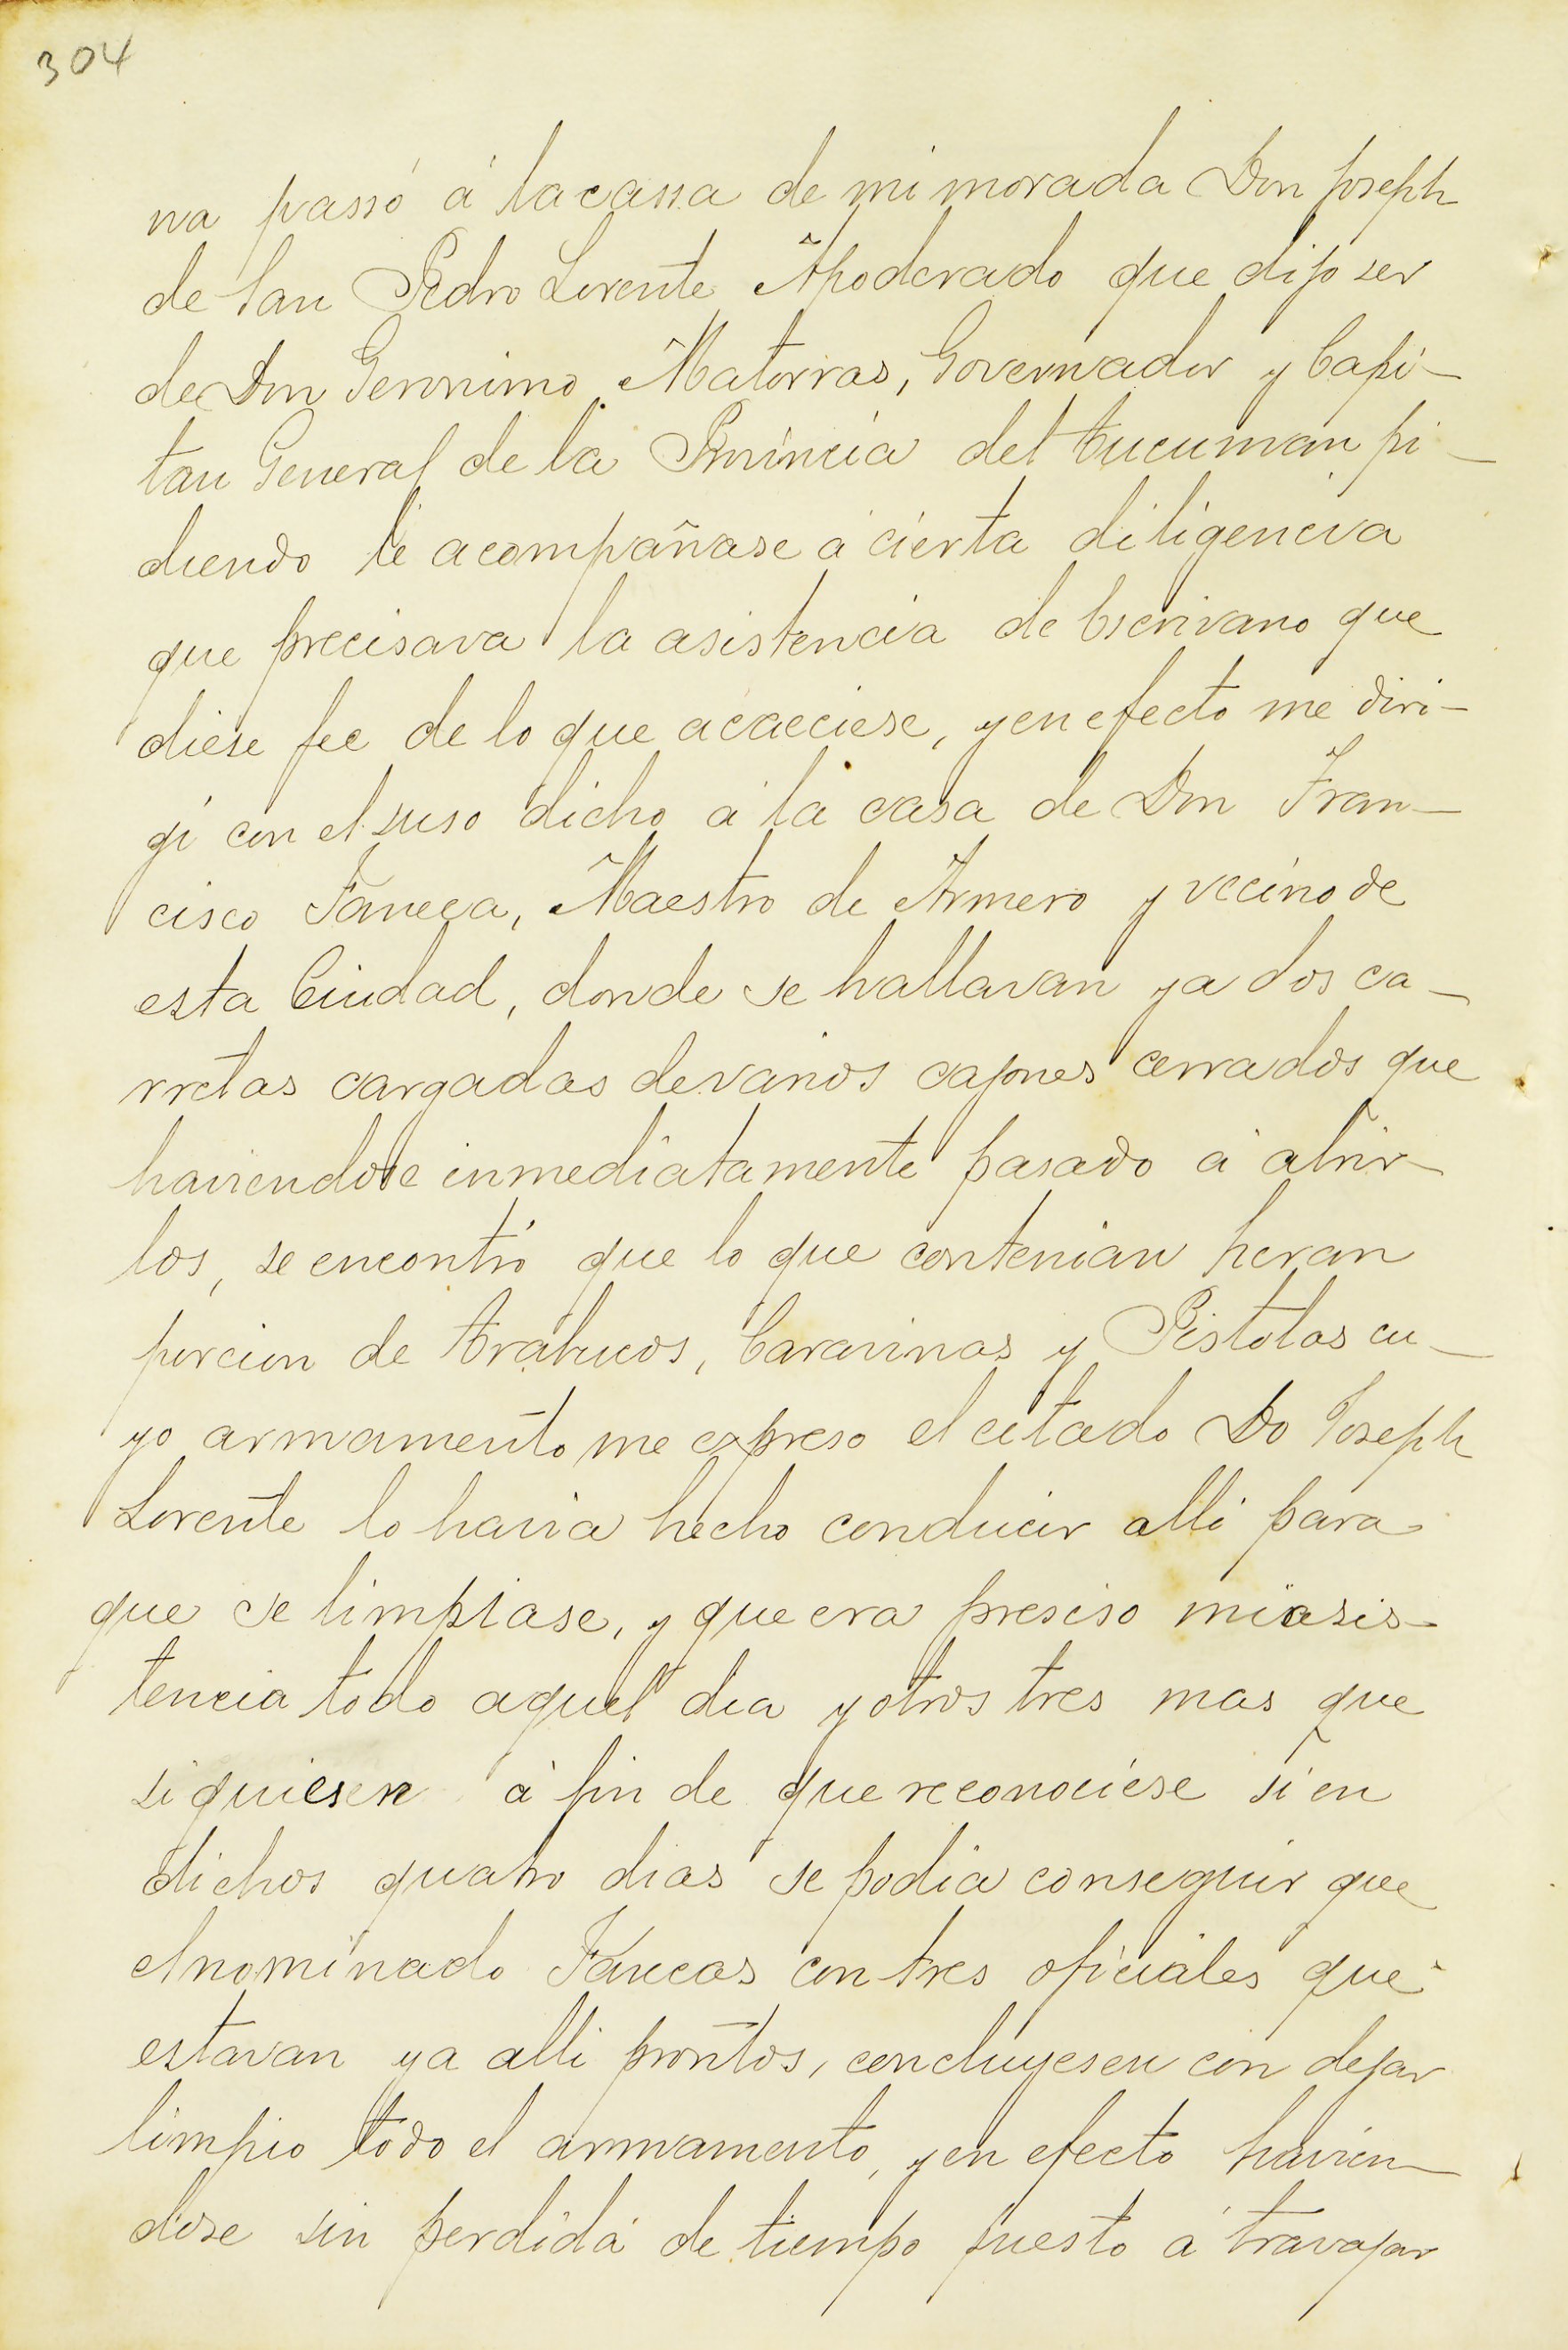 304
na passó á la cassa de mi morada Don Joseph
de San Pedro Lorente Apoderado que dijo ser
de Don Geronimo Matorras, Governador y Capi-
tan General de la Provincia del Tucuman pi-
diendo le acompañase á cierta diligencia
que precisava la asistencia de Escrivano que
diese fee de lo que acaeciese, y en efecto me diri-
gi con el suso dicho á la casa de Don Fran-
cisco Faneca, Maestro de Armero y vecino de
esta Ciudad, donde se hallavan ya dos ca-
rretas cargadas de varios cajones cerrados que
haviendose inmediatamente pasado á abrir-
los, se encontró que lo que contenian heran
porcion de trabucos, Caravinas y Pistolas cu-
yo armamento me expreso el citado Do Joseph
Lorente lo havia hecho conducir alli para
que se limpiase, y que era presiso mi asis-
tencia todo aquel dia y otros tres mas que
siguiesen á fin de que reconociese si en
dichos quatro dias se podia conseguir que
el nominado Fanecas con tres oficiales que
estavan ya alli prontos, concluyesen con dejar
limpio todo el armamento, y en efecto havien-
dose sin perdida de tiempo puesto á travajar